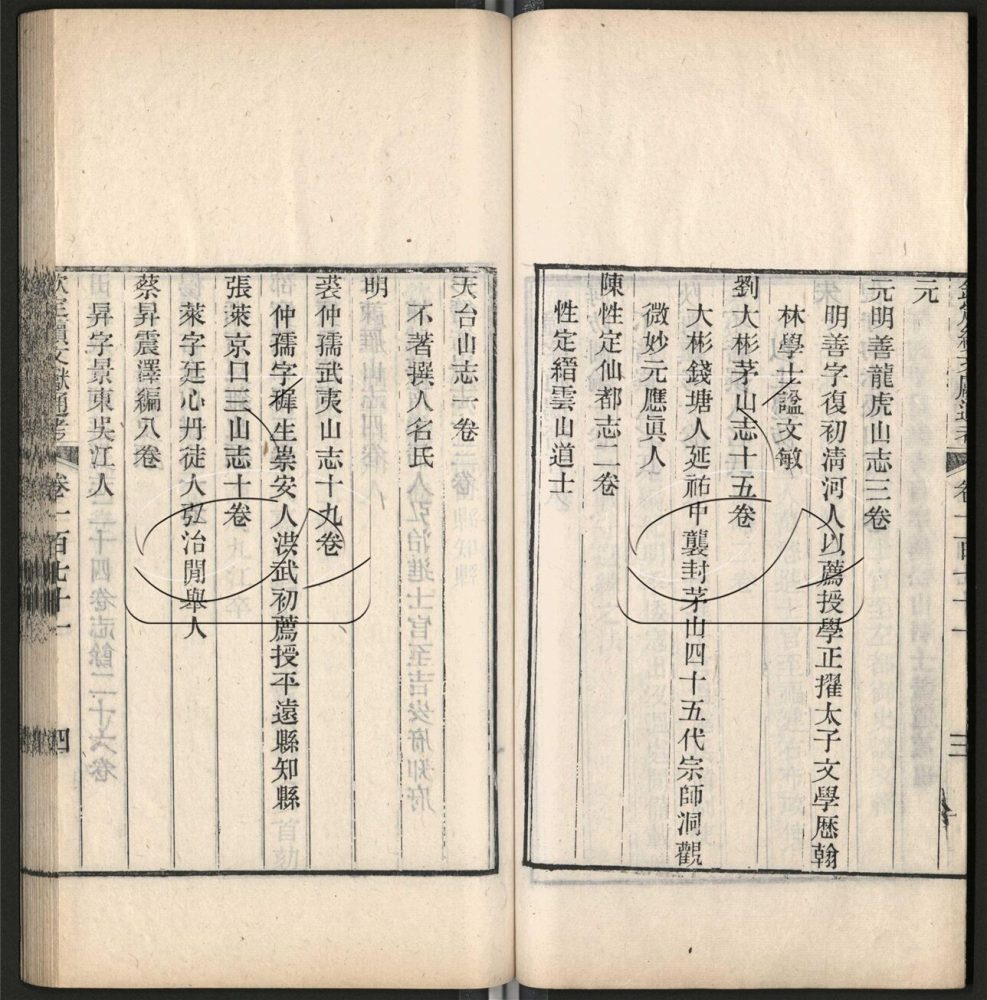 元
元明善龍虎山志三卷
明善字復初清河人以薦授學正擢太子文學歷翰
林學士謚文敏
劉大彬茅山志十五卷
大彬錢塘人延祐中襲封茅山四十五代宗師洞觀
微妙元應眞人
陳性定仙都志二卷
性定縉雲山道士
天台山志一卷
不著撰人名氏
明
裘仲孺武夷山志十九卷
仲孺字穉生崇安人洪武初薦授平遠縣知縣
張萊京口三山志十卷
萊字廷心丹徒人弘治閒舉人
蔡昇震澤編八卷
昇字景東吳江人
欽定續文獻通考 卷一百七十一 四